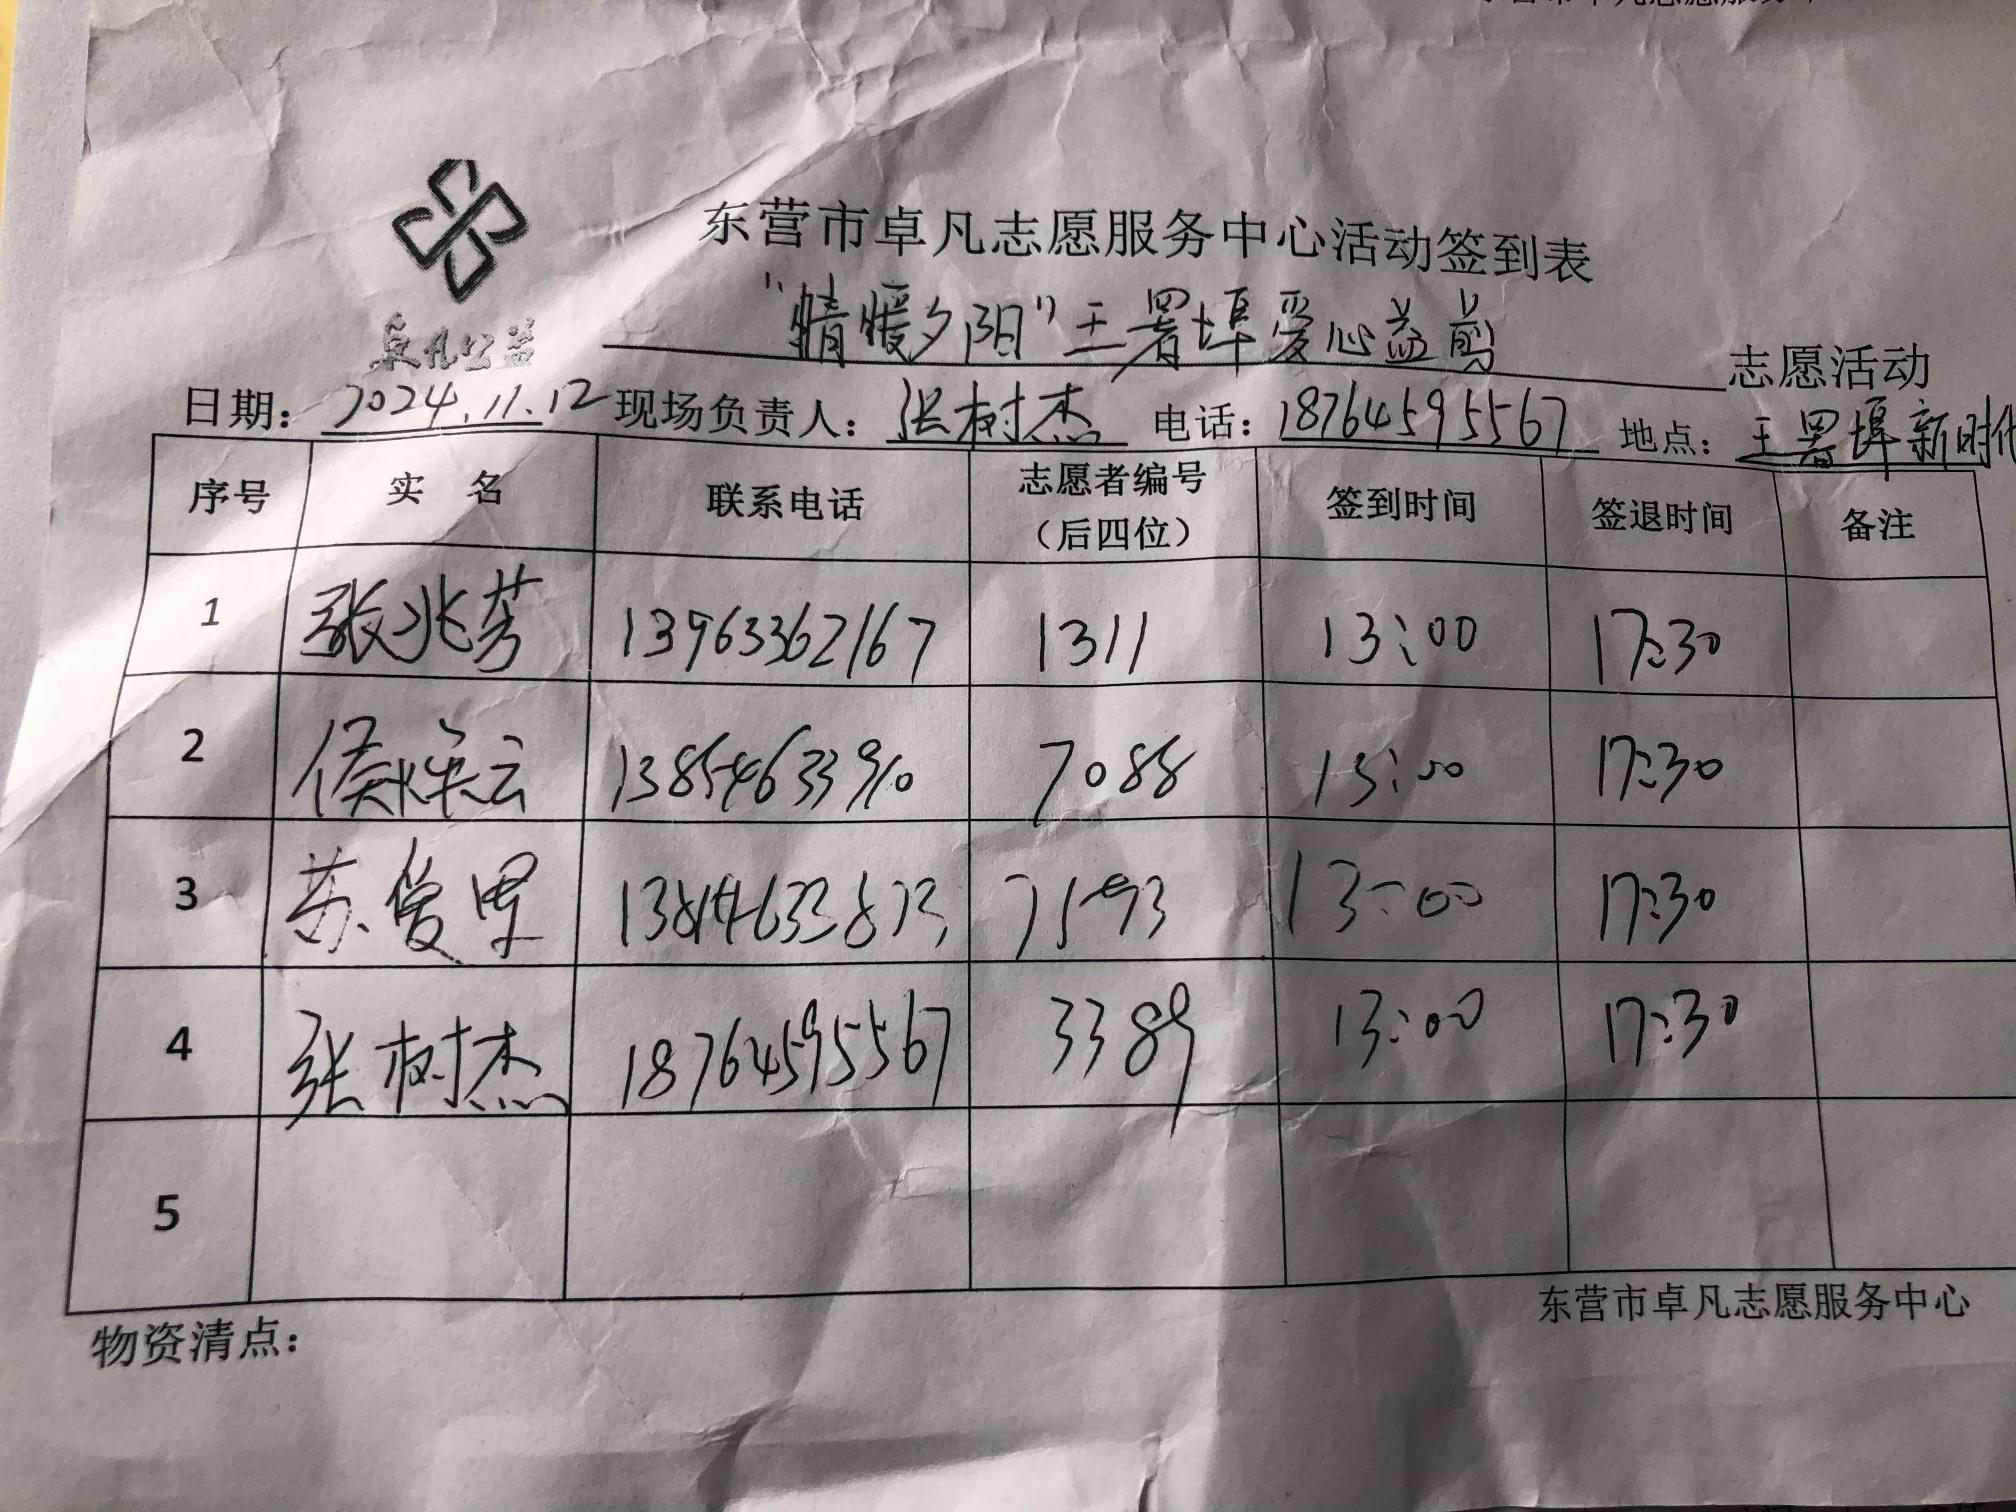 东营市卓凡志愿服务中心活动签到表
"情暖夕阳"王署埠爱心益剪 志愿活动
卓凡公益
日期：2024.11.12 现场负责人：张树杰 电话：18764595567 地点：王署埠新时代
序号 实名 联系电话 志愿者编号（后四位） 签到时间 签退时间 备注
1 张兆芳 13963362167 1311 13:00 17:30
2 侯 云 13854633910 7088 13:00 17:30
3 苏爱 7593 13:00 17:30
4 张树杰 18764595567 3389 13:00 17:30
5
东营市卓凡志愿服务中心
物资清点：